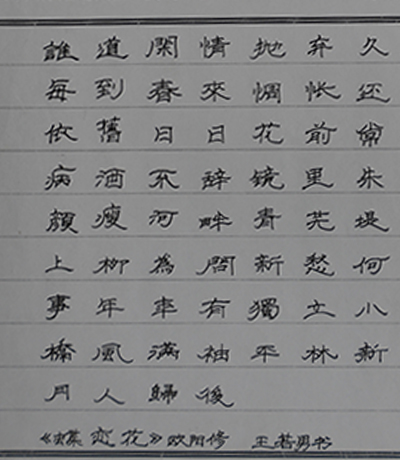 誰道閑情抛弃久
每到春來惆怅还
依舊日日花前常
病酒不辞镜里朱
顏瘦河畔青芜堤
上柳為問新愁何
事年年有獨立小
橋風滿袖平林新
月人歸後
《蝶恋花》欧阳修 王若男书